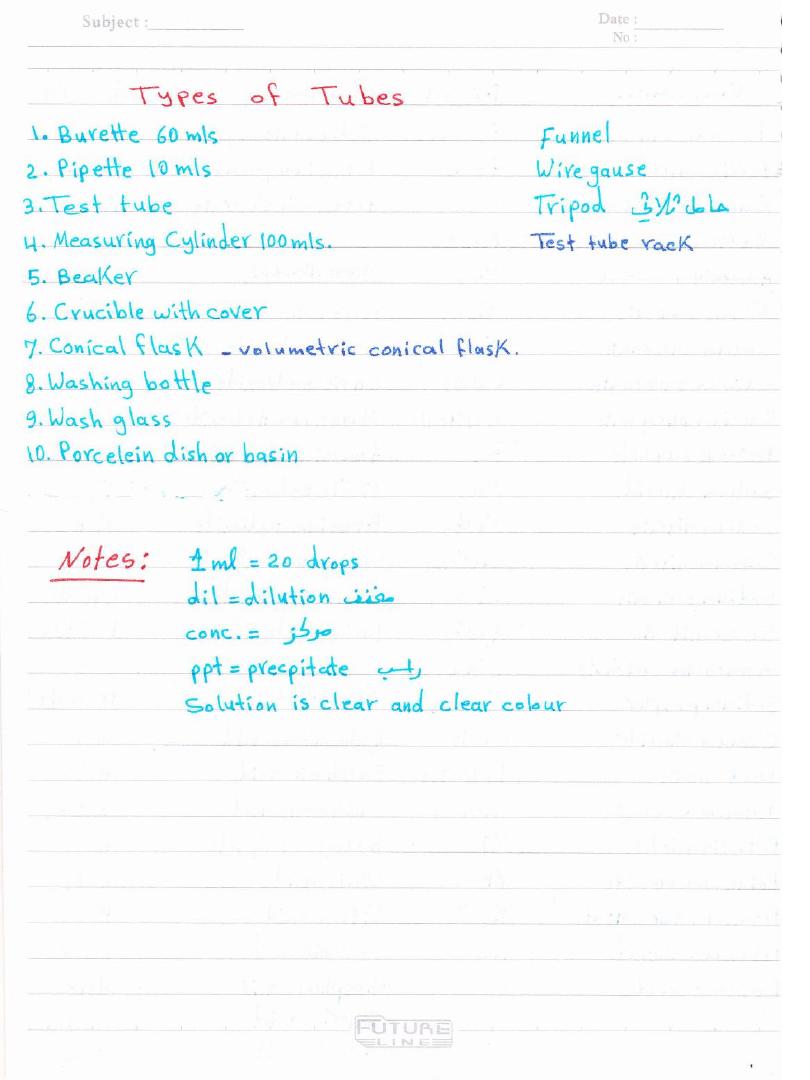 Subject :
Date :
No :
Types of Tubes
1. Burette 60 mls
2. Pipette 10 mls
3. Test tube
4. Measuring Cylinder 100 mls.
5. Beaker
6. Crucible with cover
7. Conical flask - volumetric conical flask.
8. Washing bottle
9. Wash glass
10. Porcelein dish or basin
Funnel
Wire gause
Tripod حامل ثلاثى
Test tube rack
Notes: 1 ml = 20 drops
dil = dilution مخفف
conc. = مركز
ppt = precpitate راسب
Solution is clear and clear colour
FUTURE
LINE